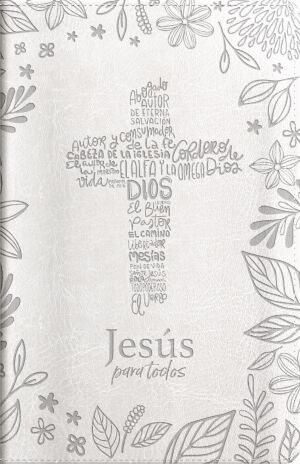 Abogado
AUTOR
DE ETERNA
SALVACIÓN
Autor y Consumador
de la fe
CABEZA DE LA IGLESIA
Cordero de Dios
El autor de la vida
EL ALFA Y LA OMEGA
DIOS
El Buen
Pastor
EL CAMINO
libertador
mesías
PAN DE VIDA
Jesús
TODOPODEROSO
El Verbo
Jesús
para todos